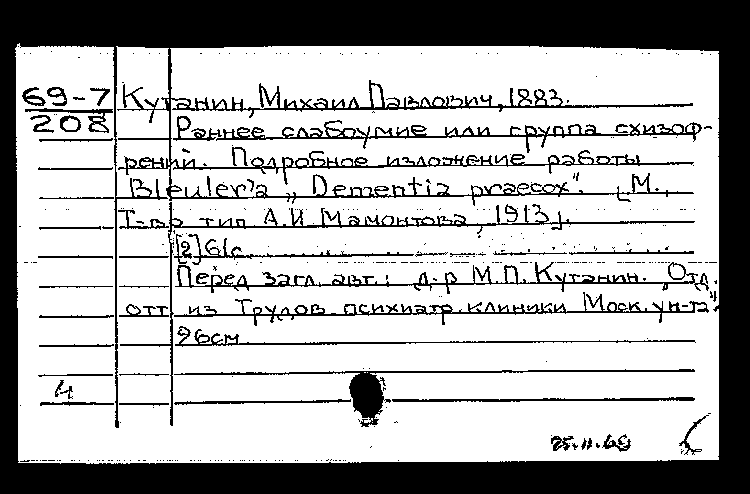 69-7 Кутанин, Михаил Павлович, 1883.
208 Раннее слабоумие или группа схизоф-
рений. Подробное изложение работы
Bleuler'a „Dementia praecox". [М.,
Т-во тип А.И. Мамонтова, 1913].
[2] 61с.
Перед загл. авт.: д-р М.П. Кутанин. „Отд.
отт из Трудов психиатр. клиники Моск. ун-та"
26см
4
25.11.69